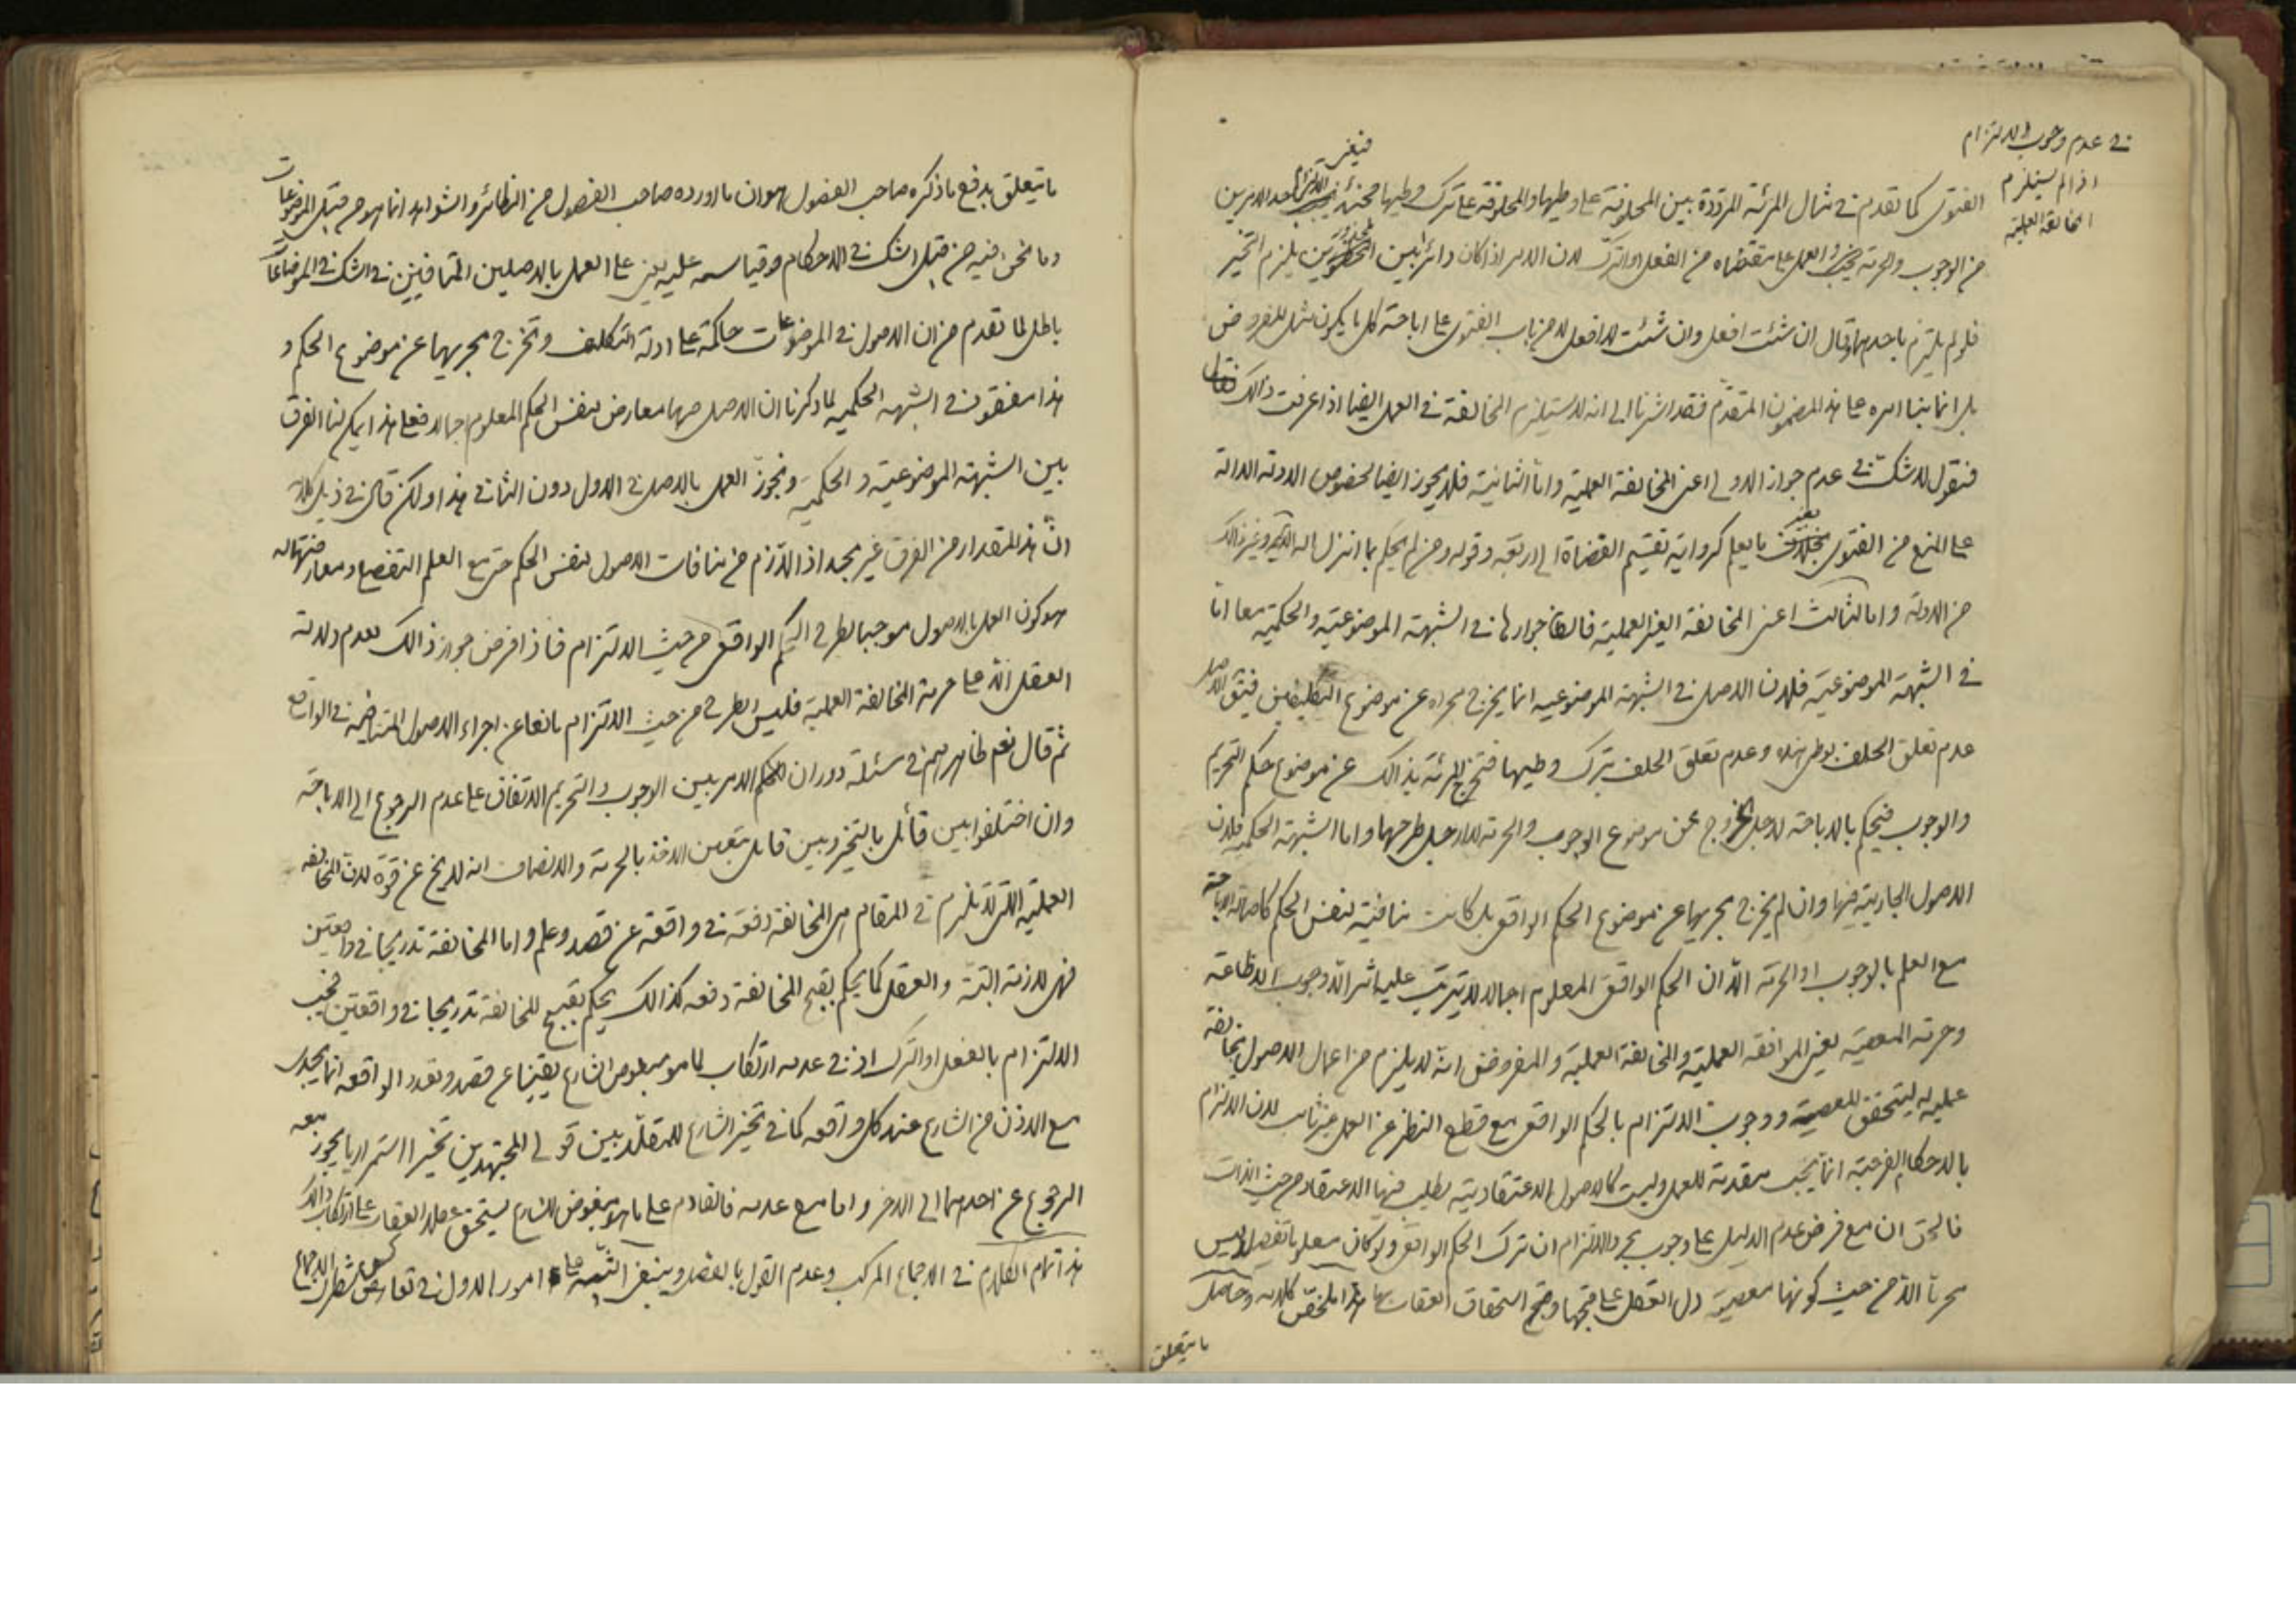 في عدم وجوب الالتزام
اذا لم يستلزم
المخالفة العملية
الفتوى كما تقدم في مثال المرئة المرددة بين المحلوفة على وطيها والمحلوفة على ترك وطيها فحينئذ الالتزام باحد الامرين
من الوجوب والحرمة والعمل على مقتضاه من الفعل او الترك لان الامر اذا كان دائرا بين المحذورين يلزم التخير
فلو لم يلتزم باحدهما وقال ان شئت افعل وان شئت لا افعل لا من باب الفتوى على اباحته كل ما يكون مثل المفروض
بل انما بنا امره على هذا المضمون المتقدم فقد اشرنا الى انه لا يستلزم المخالفة في العمل ايضا اذا عرفت ذالك
فنقول لا شك في عدم جواز الاولى اعني المخالفة العملية واما الثانية فلا يجوز ايضا لخصوص الادلة الدالة
على المنع من الفتوى بغير ما يعلم كرواية تقسيم القضاة الى اربعة وقوله ومن لم يحكم بما انزل الله الاية وغير ذالك
من الادلة واما الثالث اعني المخالفة الغير العملية فالظ جوازها في الشبهة الموضوعية والحكمية معا اما
في الشبهة الموضوعية فلان الاصل في الشبهة الموضوعيه انما يخرج مجراه عن موضوع التكليفين فيق الاصل
عدم تعلق الحلف بوطي هذه وعدم تعلق الحلف بترك وطيها فتخرج المرئة بذالك عن موضوع حكم التحريم
والوجوب فيحكم بالاباحة لاجل الخروج عن موضوع الوجوب والحرمة لا لاجل طرحهما واما الشبهة الحكمية فلان
الاصول الجارية فيها وان لم يخرج مجريها عن موضوع الحكم الواقعي بل كانت منافية لنفس الحكم كاصالة الاباحة
مع العلم بالوجوب او الحرمة الا ان الحكم الواقعي المعلوم اجمالا لا يترتب عليه اثر الا وجوب الاطاعة
وحرمة المعصية يعني الموافقة العملية والمخالفة العملية والمفروض انه لا يلزم من اعمال الاصول مخالفة
عملية ليتحقق المعصية ووجوب الالتزام بالحكم الواقعي مع قطع النظر عن العمل غير ثابت لان الالتزام
بالاحكام الفرعية انما يجب مقدمة للعمل وليست كالاصول الاعتقادية يطلب فيها الاعتقاد من حيث الذات
فالحق ان مع فرض عدم الدليل على وجوب الالتزام ان ترك الحكم الواقعي ولو كان معلوما تفصيلا ليس
محرما الا من حيث كونها معصية دل العقل على قبحها وقبح استحقاق العقاب بها هذا ملخص كلامه وحاصل
ما يتعلق
ما يتعلق بدفع ما ذكره صاحب الفصول هو ان ما اورده صاحب الفصول من النظائر والشواهد انما هو من قبيل الموضوعات
وما نحن فيه من قبيل الشك في الاحكام وقياسه عليه يعني على العمل بالاصلين المتنافيين في الشك في الموضوعات
باطل لما تقدم من ان الاصول في الموضوعات حاكمة على ادلة التكليف وتخرج مجريها عن موضوع الحكم و
هذا مفقود في الشبهة الحكمية لما ذكرنا ان الاصل فيها معارض لنفس الحكم المعلوم اجمالا فعلى هذا يمكن لنا الفرق
بين الشبهة الموضوعية والحكمية ونجوز العمل بالاصل في الاول دون الثاني هذا ولكن قال في ذيل كلامه
ان هذا المقدار من الفرق غير مجد اذ اللازم من منافات الاصول لنفس الحكم حتى مع العلم التفصيلي ومعارضتها له
هو كون العمل بالاصول موجبا لطرح الحكم الواقعي من حيث الالتزام فاذا فرض جواز ذالك لعدم دلالة
العقل الا على حرمة المخالفة العملية فليس الطرح من حيث الالتزام مانعا عن اجراء الاصول المتنافية في الواقع
ثم قال نعم ظاهرهم في مسئلة دوران الامر بين الوجوب والتحريم الاتفاق على عدم الرجوع الى الاباحة
وان اختلفوا بين قائل بالتخير وبين قايل بتعين الاخذ بالحرمة والانصاف انه لا يخ عن قوة لان المخالفة
العملية التي لا تلزم في المقام هي المخالفة دفعة في واقعة عن قصد وعلم واما المخالفة تدريجا في واقعتين
فهي لازمة البتة والعقل كما يحكم بقبح المخالفة دفعه كذالك يحكم بقبح المخالفة تدريجا في واقعتين فيجب
الالتزام بالفعل او الترك اذ في عدمه ارتكاب لما هو مبغوض الشارع يقينا عن قصد وتعدد الواقعة انما يجدي
مع الاذن من الشارع عند كل واقعه كما في تخير الشارع للمقلد بين قولي المجتهدين تخيرا استمراريا يجوز معه
الرجوع عن احدهما الى الاخر واما مع عدمه فالقادم على ما هو مبغوض للشارع يستحق عقلا العقاب على ارتكاب ذالك
هذا تمام الكلام في الاجماع المركب وعدم القول بالفصل وينبغي التنبيه على امور الاول في تعارض شطري الاجماع